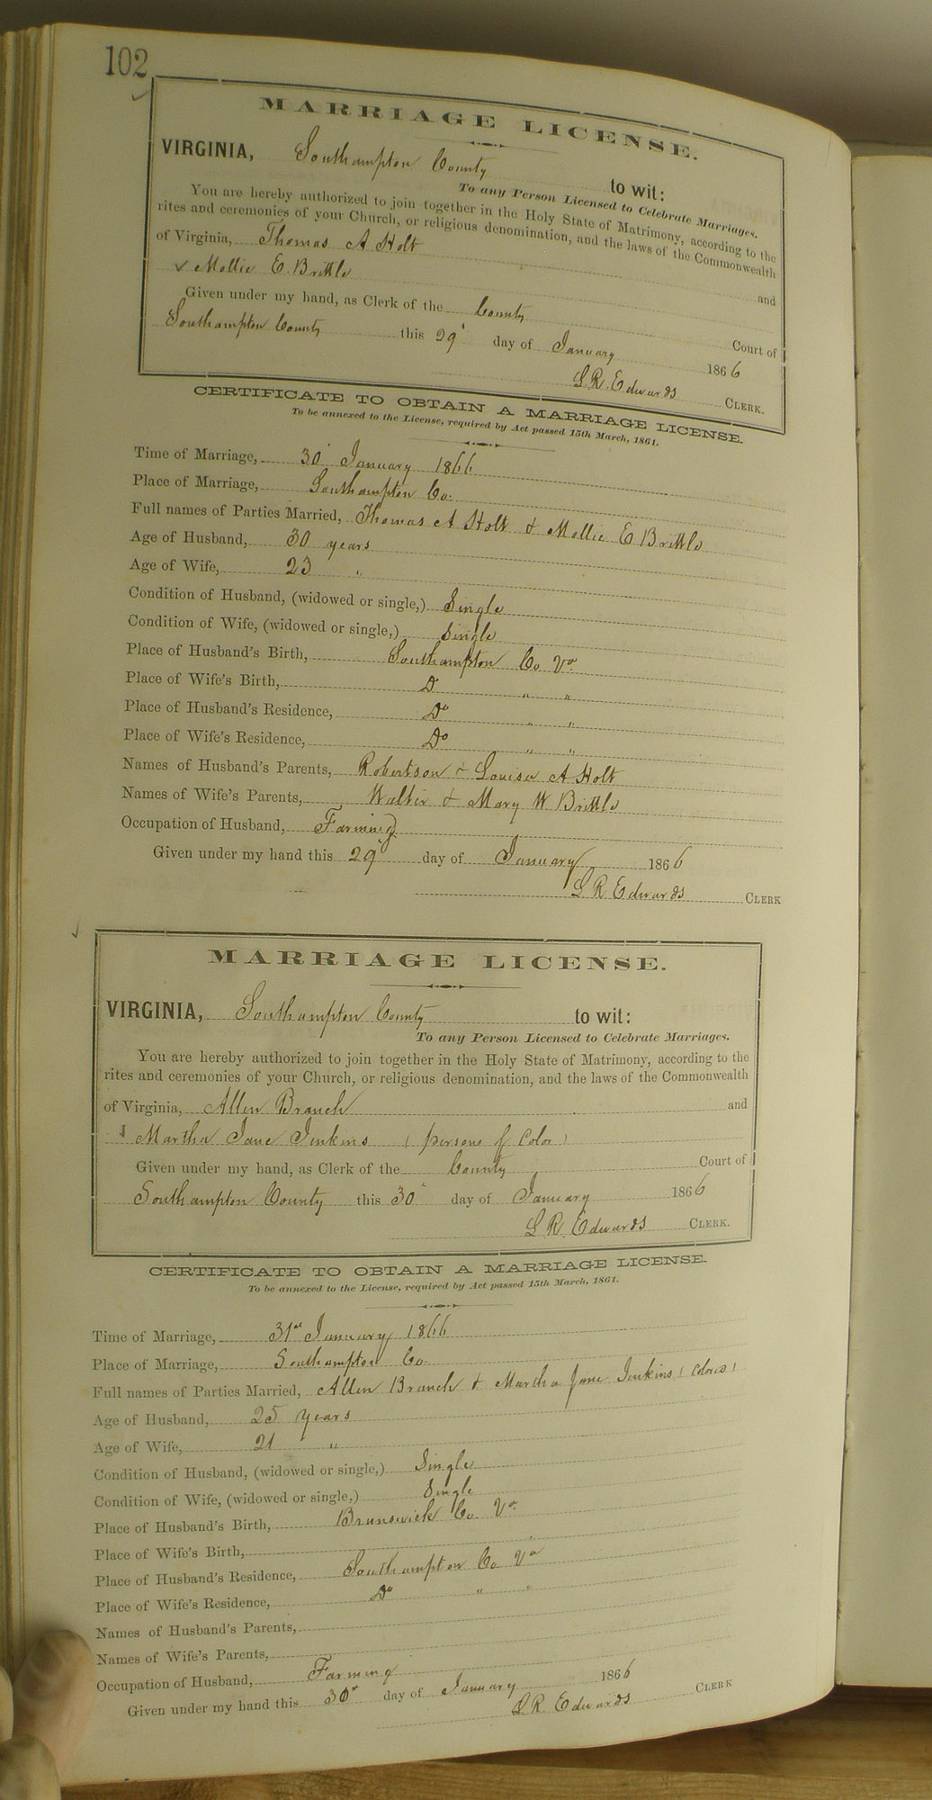 102
MARRIAGE LICENSE.
VIRGINIA, Southampton County to wit:
To any Person Licensed to Celebrate Marriages.
You are hereby authorized to join together in the Holy State of Matrimony, according to the
rites and ceremonies of your Church, or religious denomination, and the laws of the Commonwealth
of Virginia, Thomas A Holt and
Mollie E. Brittle
Given under my hand, as Clerk of the County Court of
Southampton County this 29 day of January 1866
L R. Edwards CLERK.
CERTIFICATE TO OBTAIN A MARRIAGE LICENSE.
To be annexed to the License, required by Act passed 15th March, 1861.
Time of Marriage, 30 January 1866
Place of Marriage, Southampton Co.
Full names of Parties Married, Thomas A Holt & Mollie E Brittle
Age of Husband, 30 years
Age of Wife, 23 "
Condition of Husband, (widowed or single,) Single
Condition of Wife, (widowed or single,) Single
Place of Husband's Birth, Southampton Co Va
Place of Wife's Birth, D " "
Place of Husband's Residence, Do " "
Place of Wife's Residence, Do " "
Names of Husband's Parents, Robertson & Louisa A Holt
Names of Wife's Parents, Walter & Mary W Brittle
Occupation of Husband, Farming
Given under my hand this 29 day of January 1866
L R Edwards CLERK
MARRIAGE LICENSE.
VIRGINIA, Southampton County to wit:
To any Person Licensed to Celebrate Marriages.
You are hereby authorized to join together in the Holy State of Matrimony, according to the
rites and ceremonies of your Church, or religious denomination, and the laws of the Commonwealth
of Virginia, Allen Branch and
Martha Jane Jenkins (persons of Color)
Given under my hand, as Clerk of the County Court of
Southampton County this 30 day of January 1866
L R. Edwards CLERK.
CERTIFICATE TO OBTAIN A MARRIAGE LICENSE.
To be annexed to the License, required by Act passed 15th March, 1861.
Time of Marriage, 31st January 1866
Place of Marriage, Southampton Co.
Full names of Parties Married, Allen Branch & Martha Jane Jenkins (Colored)
Age of Husband, 25 years
Age of Wife, 21 "
Condition of Husband, (widowed or single,) Single
Condition of Wife, (widowed or single,) Single
Place of Husband's Birth, Brunswick Co. Va
Place of Wife's Birth,
Place of Husband's Residence, Southampton Co Va
Place of Wife's Residence, Do " "
Names of Husband's Parents,
Names of Wife's Parents,
Occupation of Husband, Farming
Given under my hand this 30 day of January 1866
L R. Edwards CLERK